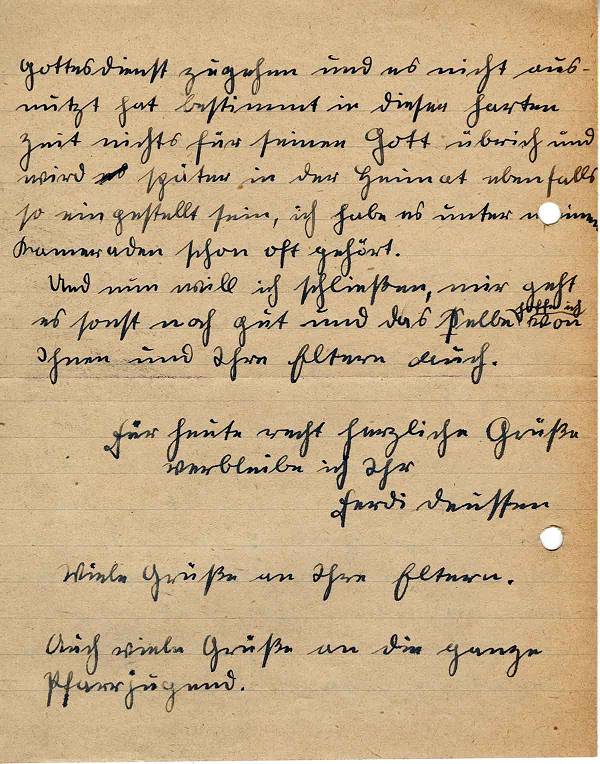 Gottesdienst zugehen und es nicht aus-
nützt hat bestimmt in dieser harten
Zeit nichts für seinen Gott übrich und
wird es später in der Heimat ebenfalls
so eingestellt sein, ich habe es unter meinen
Kameraden schon oft gehört.
Und nun will ich schließen, mir geht
es sonst noch gut und das Selbe hoffe ich von
Ihnen und Ihre Eltern auch.
Für heute recht herzliche Grüße
verbleibe ich Ihr
Ferdi Deussen
Viele Grüße an Ihre Eltern.
Auch viele Grüße an die ganze
Pfarrjugend.